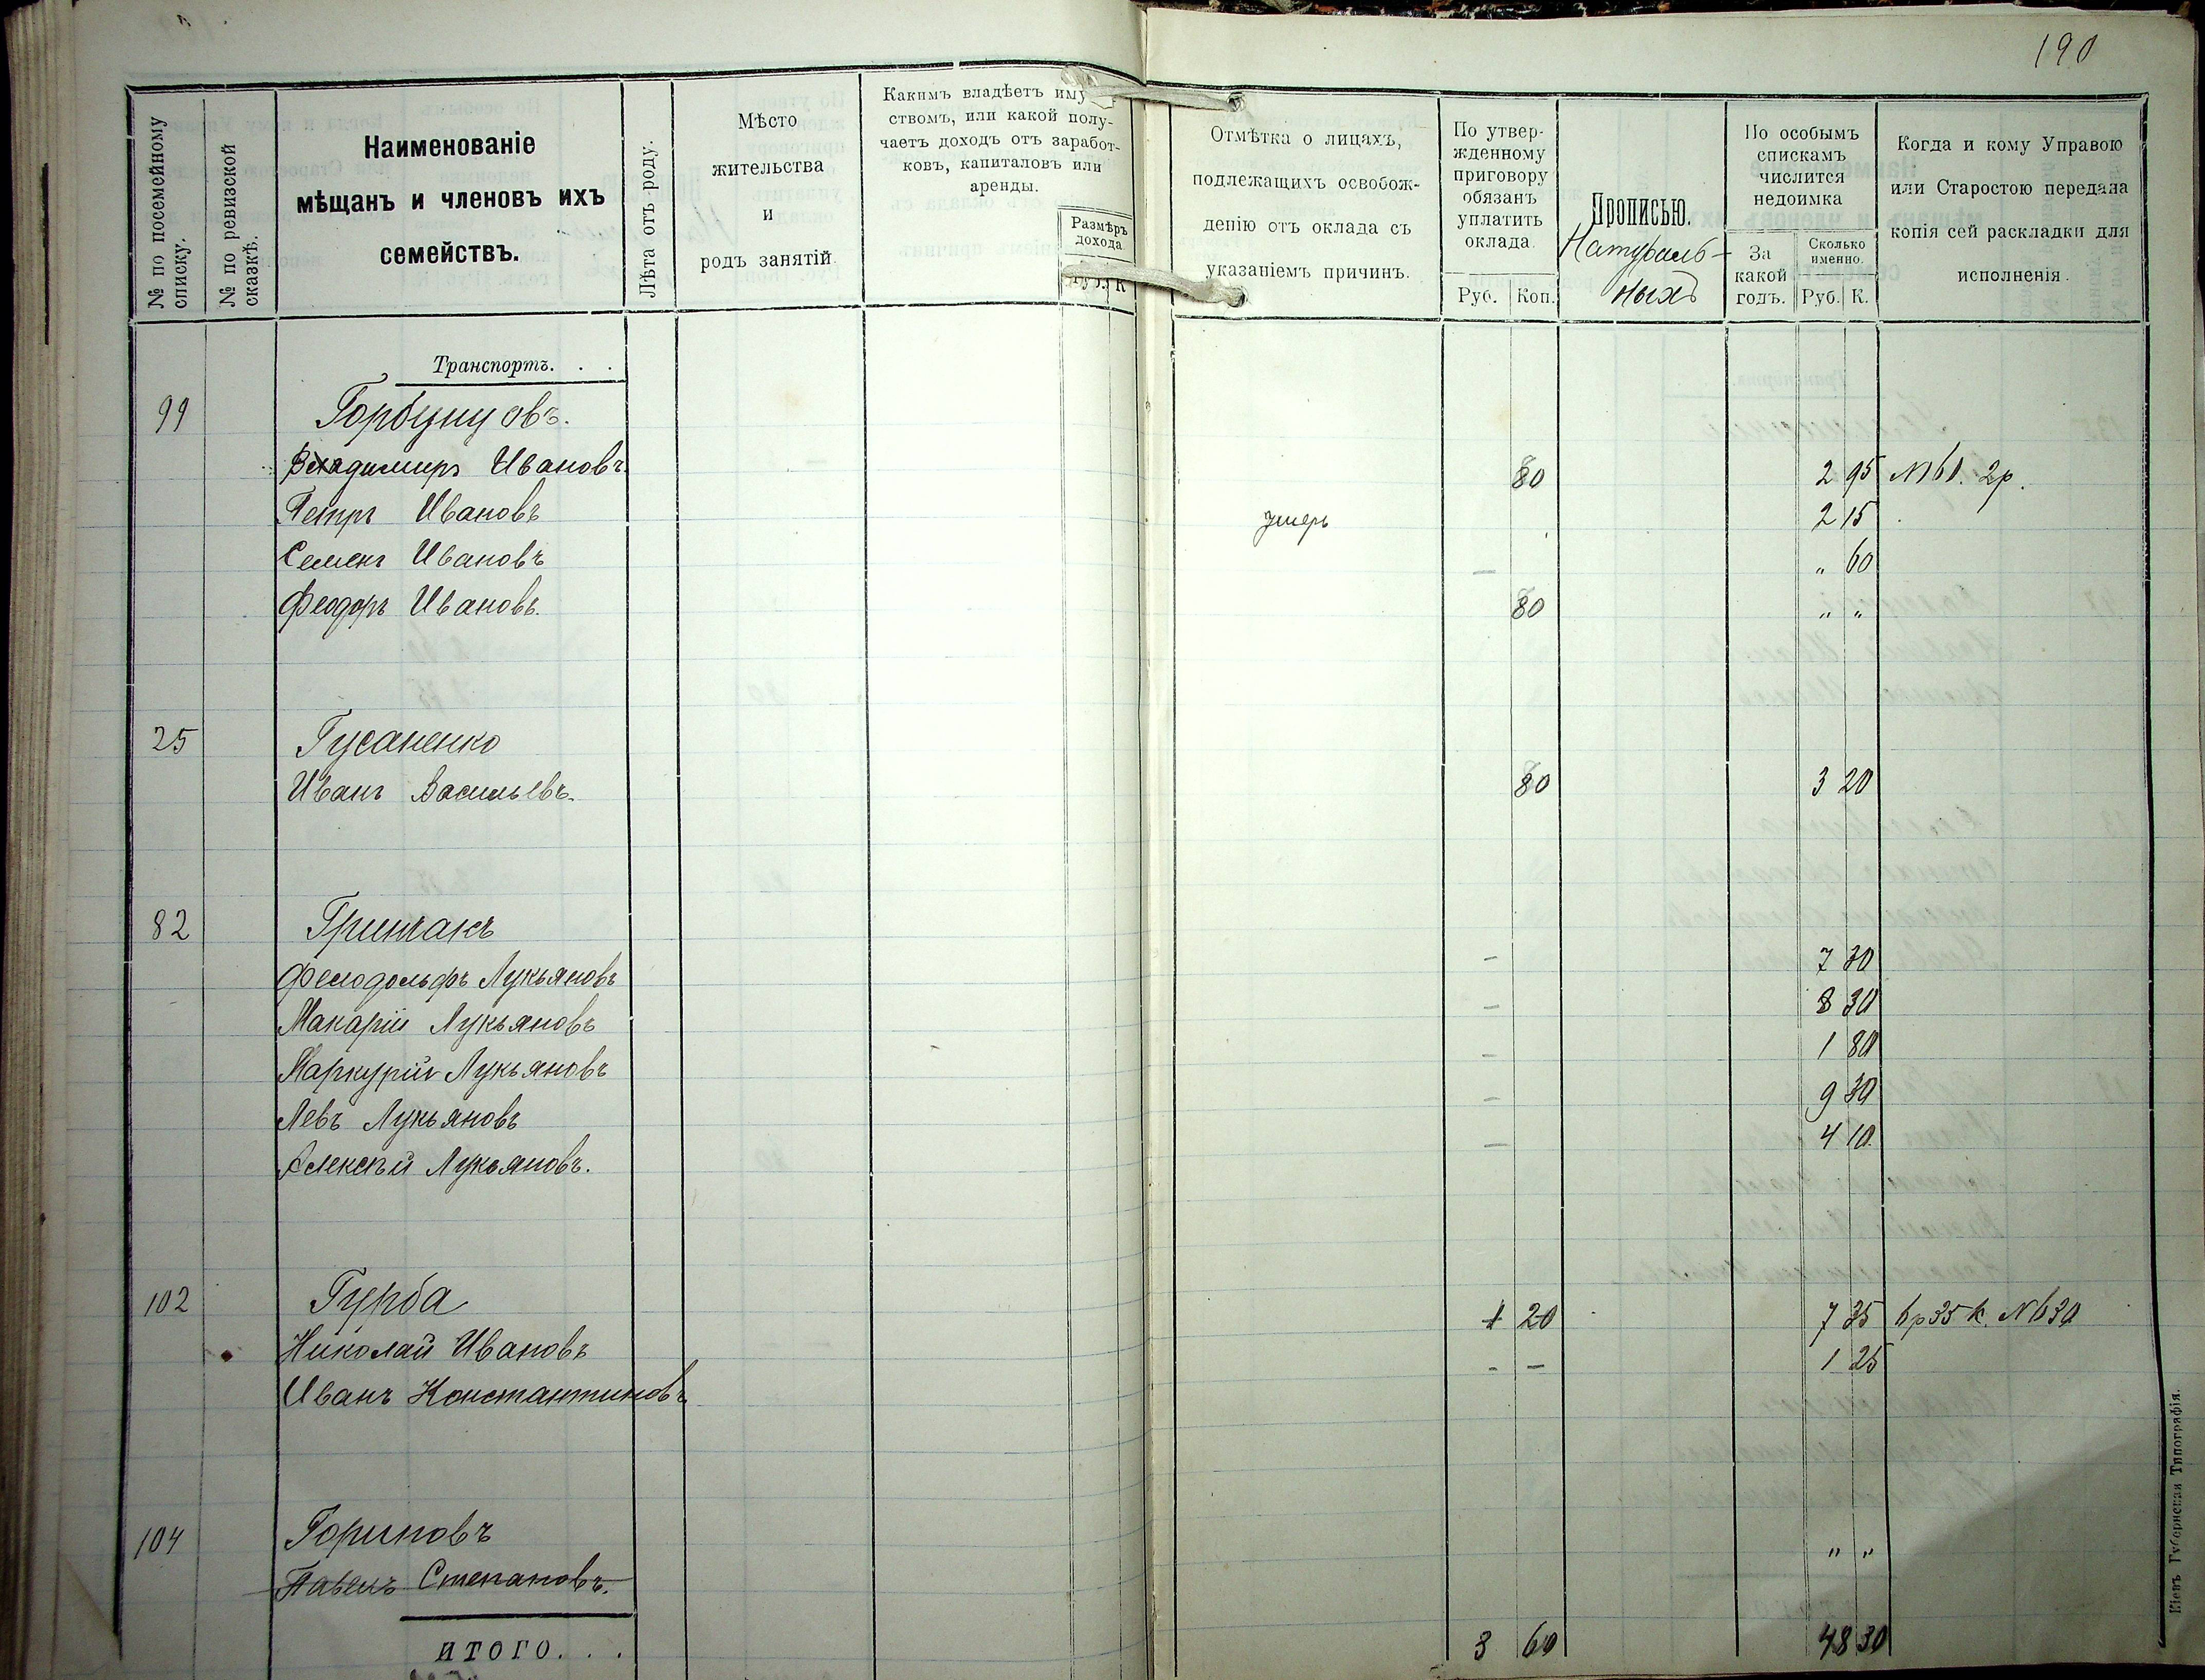 190
№ по посемейному списку.
№ по ревизской сказкѣ.
Наименованіе
мѣщанъ и членовъ ихъ
семействъ.
Лѣта отъ роду.
Мѣсто
жительства
и
родъ занятій
Какимъ владѣетъ иму
ствомъ, или какой полу-
чаетъ доходъ отъ заработ-
ковъ, капиталовъ или
аренды.
Размѣръ
дохода
Руб. К
Отмѣтка о лицахъ,
подлежащихъ освобож-
денію отъ оклада съ
указаніемъ причинъ.
По утвер-
жденному
приговору
обязанъ
уплатить
оклада.
Руб. Коп.
Прописью.
Натураль-
ныхъ
По особымъ
спискамъ
числится
недоимка
За
какой
годъ.
Сколько
именно.
Руб. К.
Когда и кому Управою
или Старостою передана
копія сей раскладки для
исполненія.
Транспортъ. . .
99 Горбунцовъ.
Владимиръ Ивановъ 80 2 95 №61. 2р.
Петръ Ивановъ умеръ 2 15
Семенъ Ивановъ — „ 60
Феодоръ Ивановъ. 80 „ „
25 Гусаненко
Иванъ Васильевъ. 80 3 20
82 Гринчакъ
Лукьяновъ – 7 30
Макарій Лукьяновъ – 8 30
Маркурій Лукьяновъ – 1 80
Левъ Лукьяновъ – 9 30
Алексѣй Лукьяновъ. – 4 10
102 Гурба
Николай Ивановъ 1 20 7 35 6р35к. №630
Иванъ Константиновъ - - 1 25
104 Гориновъ
Павелъ Степановъ. „ „
ИТОГО. . . 3 60 48 30
Кіевъ Губернская Типографія.